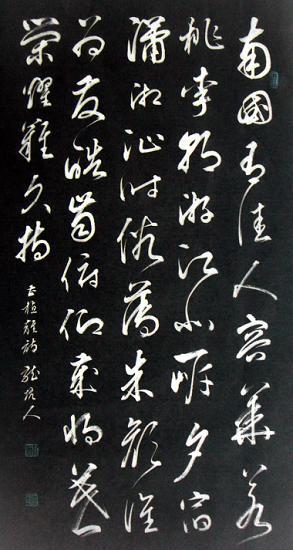 南國有佳人容華若
桃李朝游江北岸夕宿
瀟湘沚時俗薄朱顏誰
為發皓齒俯仰歲將暮
榮燿難久恃
曹植雜詩